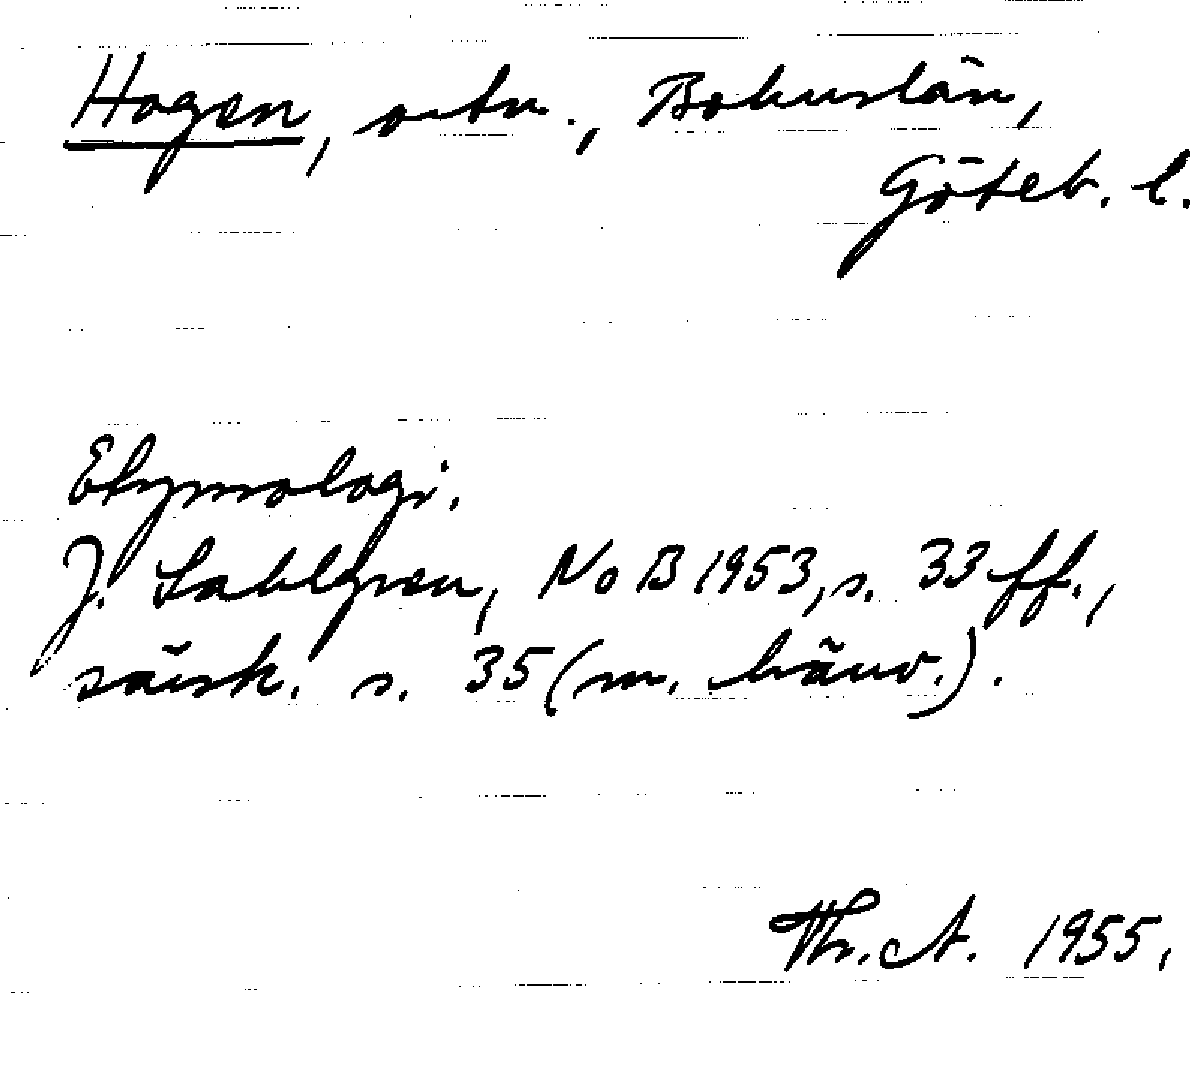 Hogen, ortn., Bohuslän,
Göteb. l.
Etymologi.
J. Sahlgren, NoB 1953, s. 33 ff.,
särsk. s. 35 (m. hänv.).
Th. A. 1955.